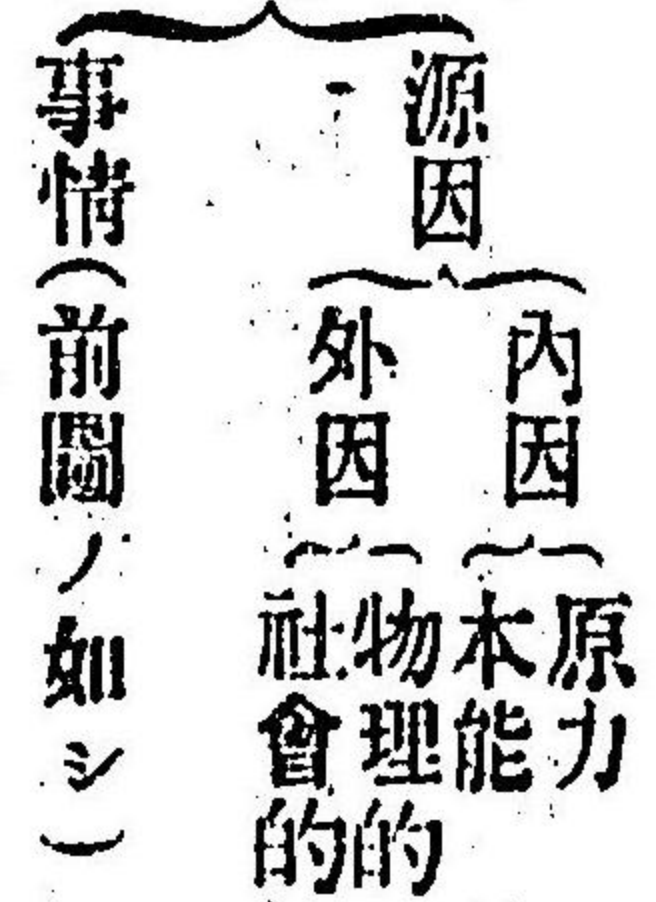 源因
內因
原力
本能
外因
物理的
社會的
事情(前圖ノ如シ)